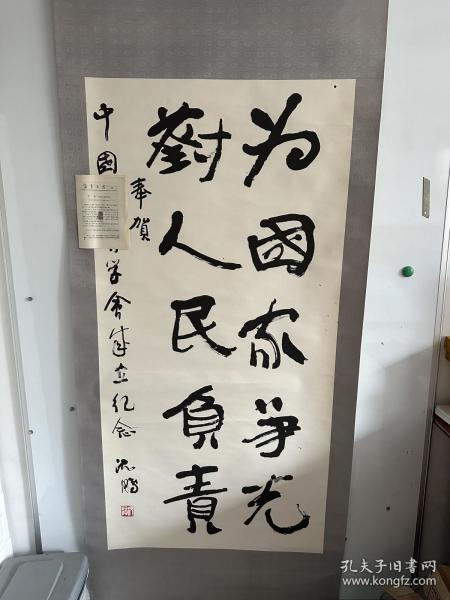 为國家争光
對人民負責
奉賀
中國
学會成立纪念 沈鹏
孔夫子旧书网
www.kongfz.com